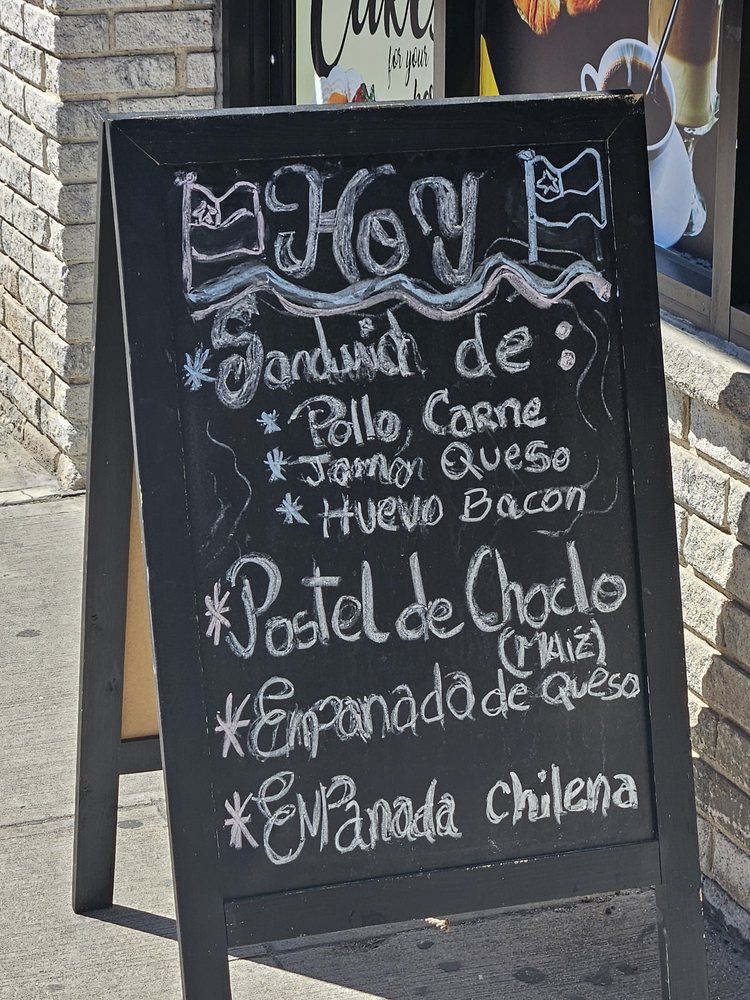 Cakes
for your
Hoy
* Sandwich de :
* Pollo, Carne
* Jamón Queso
* Huevo Bacon
* Pastel de Choclo
(Maíz)
* Empanada de Queso
* Empanada chilena